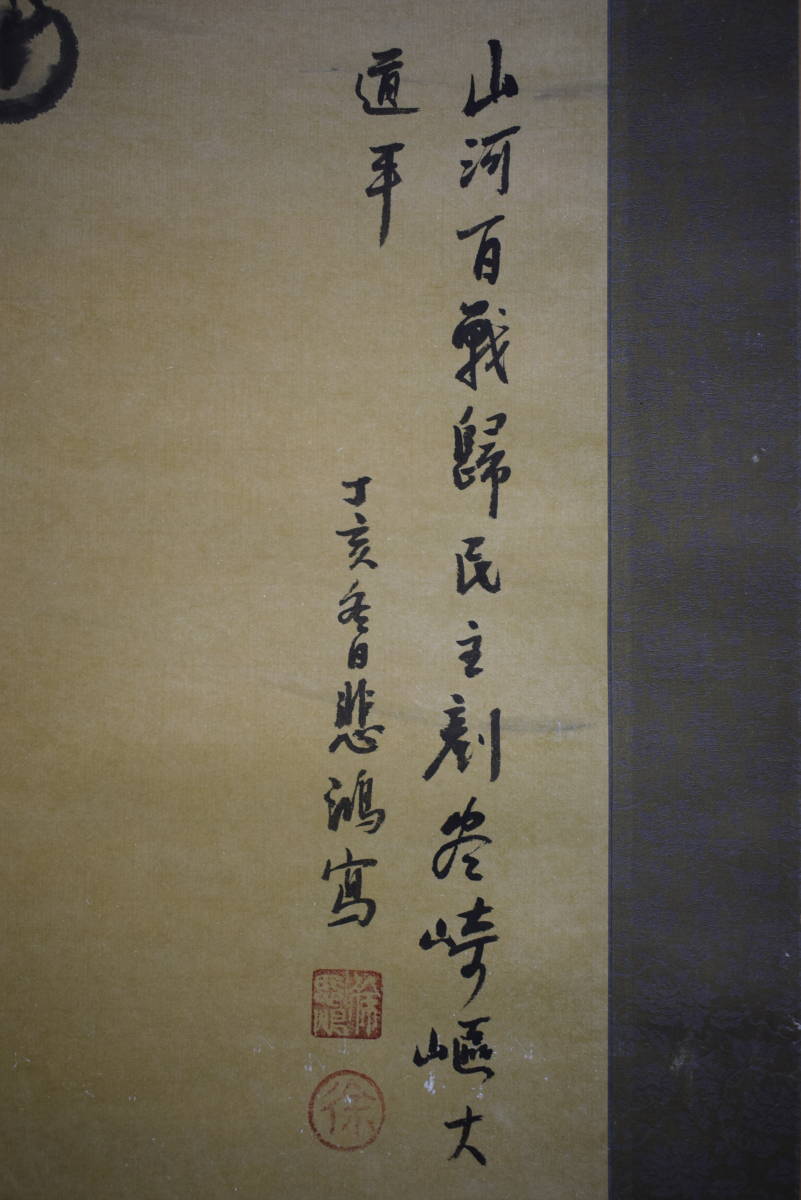 山河百戰歸民主剷尽崎嶇大
道平
丁亥冬日悲鴻寫
徐